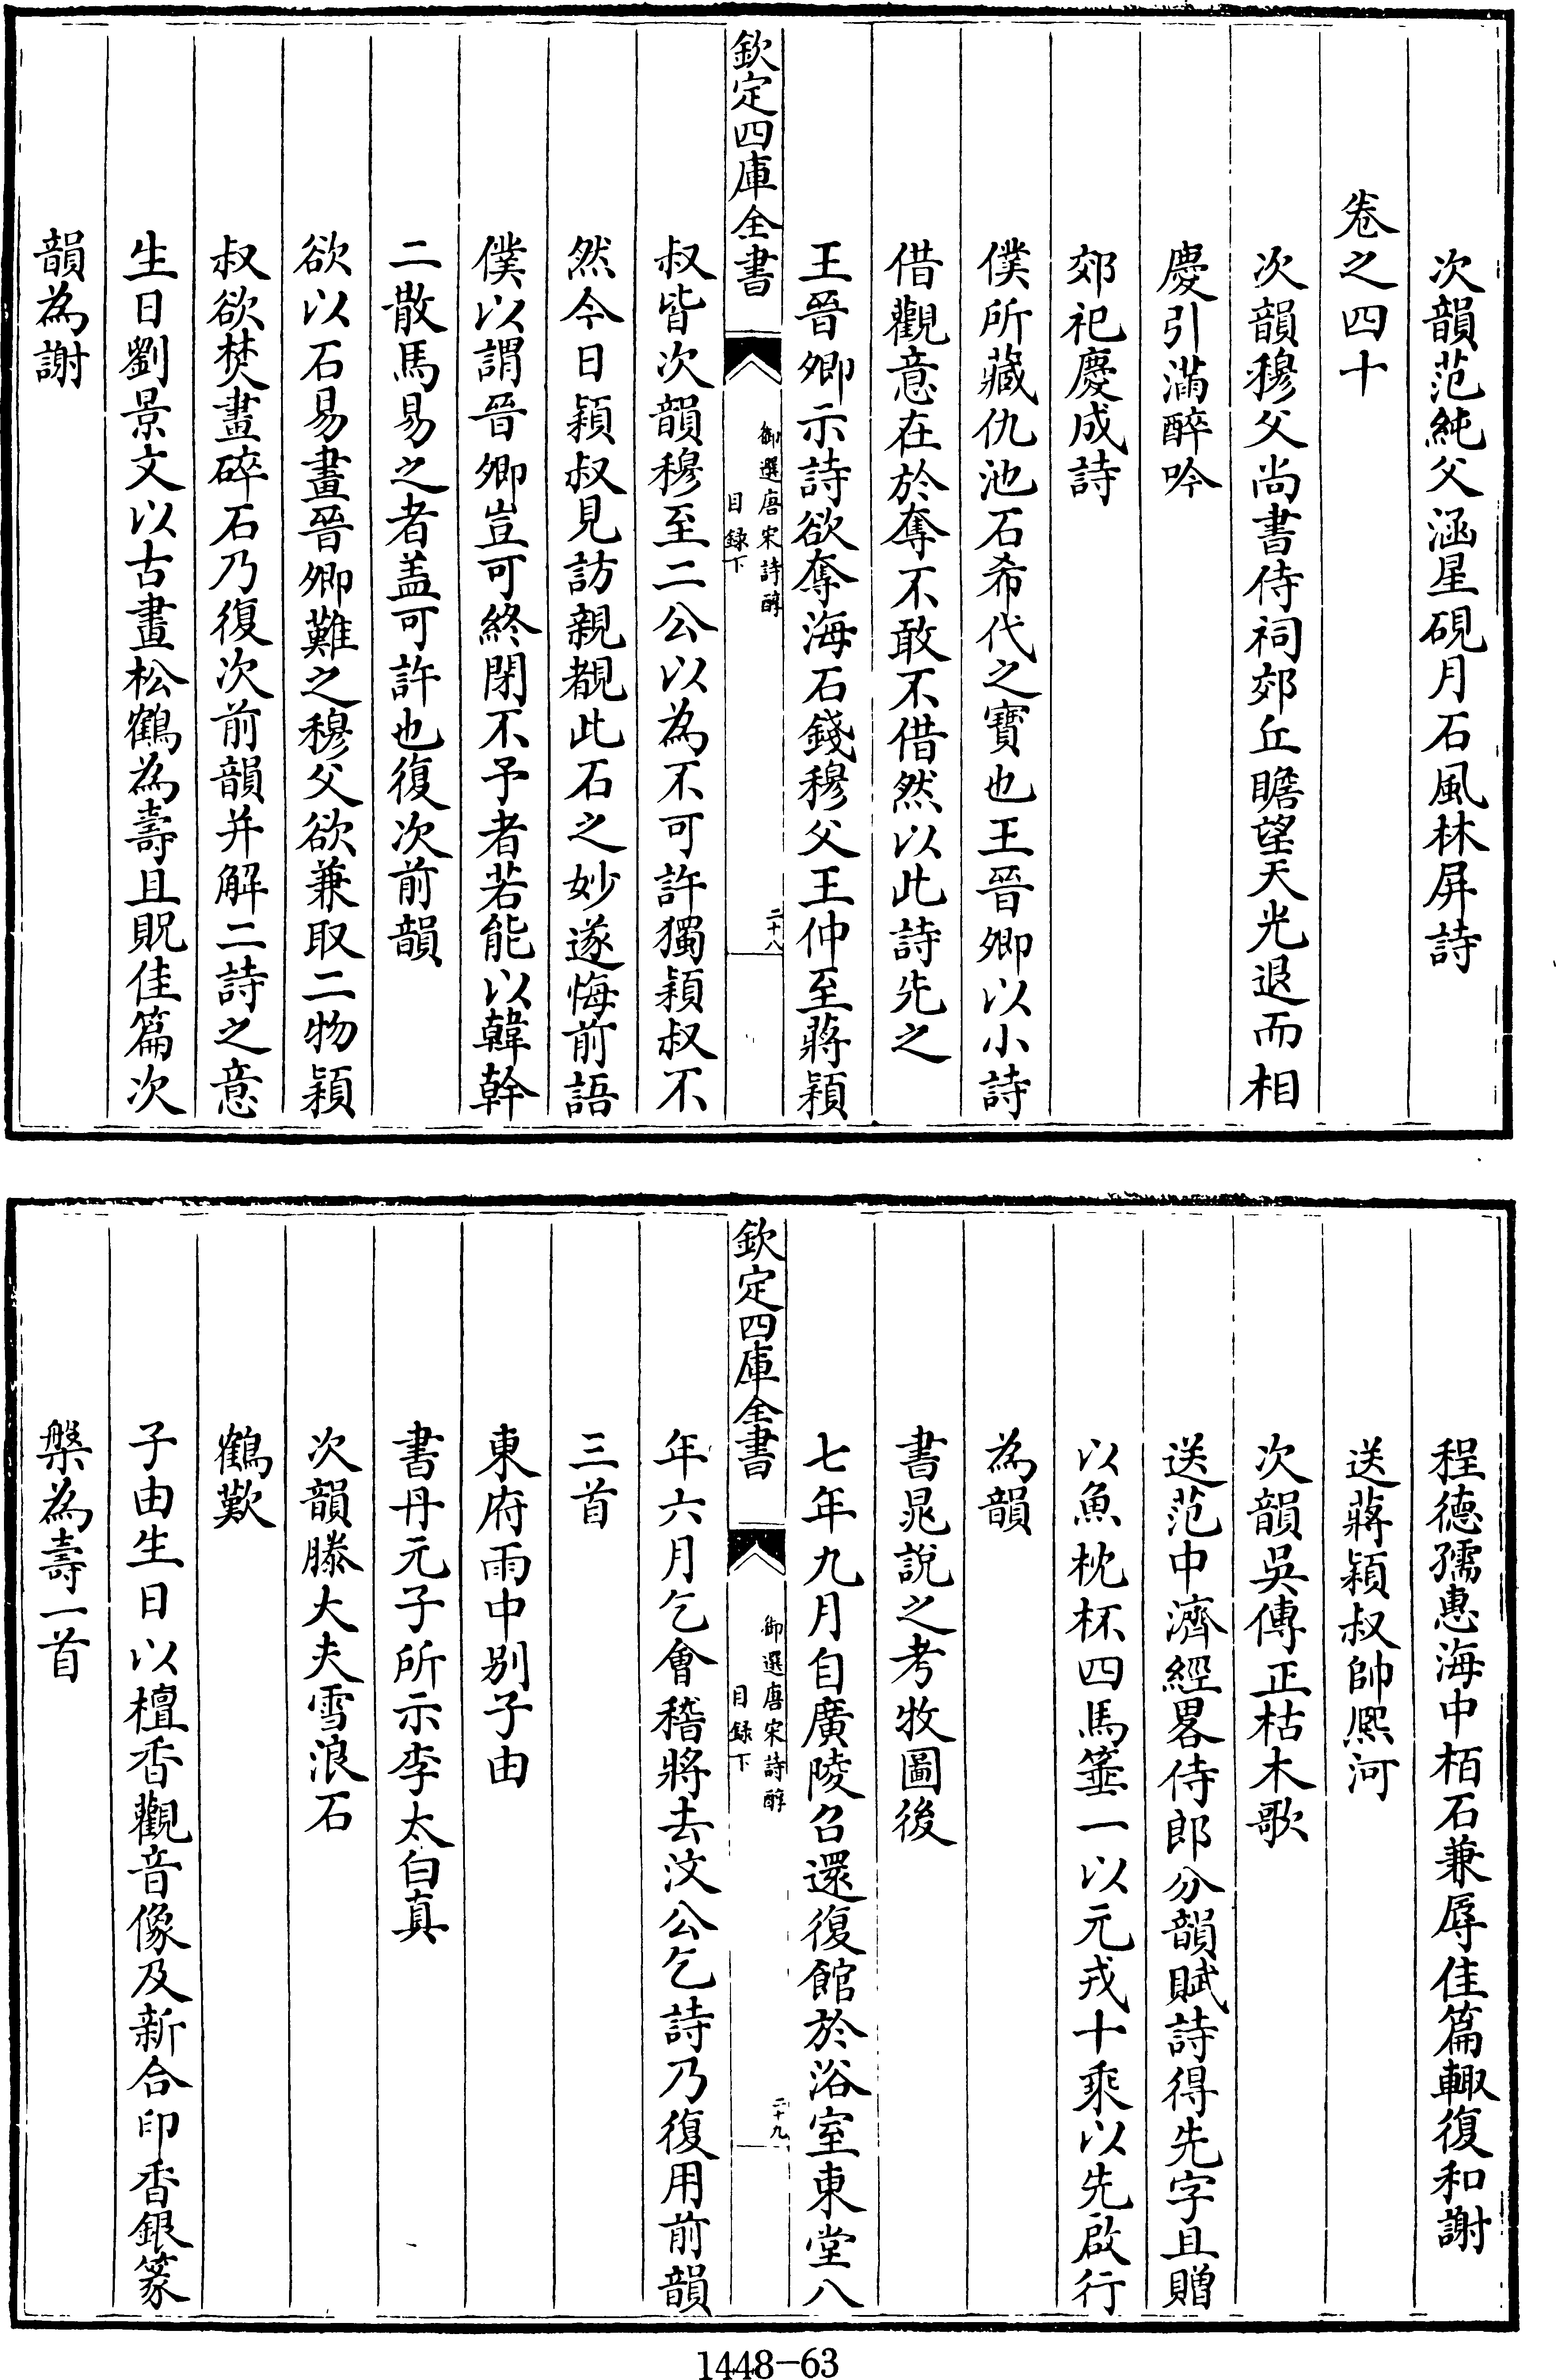 次韻范純父涵星硯月石風林屏詩
卷之四十
次韻穆父尚書侍祠郊丘瞻望天光退而相
慶引滿醉吟
郊祀慶成詩
僕所藏仇池石希代之寶也王晉卿以小詩
借觀意在於奪不敢不借然以此詩先之
王晉卿示詩欲奪海石錢穆父王仲至蔣穎
欽定四庫全書
御選唐宋詩醇
目録下
二十八
叔皆次韻穆至二公以為不可許獨穎叔不
然今日穎叔見訪親覩此石之妙遂悔前語
僕以謂晉卿豈可終閉不予者若能以韓幹
二散馬易之者盖可許也復次前韻
欲以石易畫晉卿難之穆父欲兼取二物穎
叔欲焚畫碎石乃復次前韻并解二詩之意
生日劉景文以古畫松鶴為壽且貺佳篇次
韻為謝
程德孺惠海中栢石兼辱佳篇輙復和謝
送蔣穎叔帥熈河
次韻吳傳正枯木歌
送范中濟經畧侍郎分韻賦詩得先字且贈
以魚枕杯四馬箠一以元戎十乘以先啟行
為韻
書晁說之考牧圖後
七年九月自廣陵召還復館於浴室東堂八
欽定四庫全書
御選唐宋詩醇
目録下
二十九
年六月乞會稽將去汶公乞詩乃復用前韻
三首
東府雨中别子由
書丹元子所示李太白真
次韻滕大夫雪浪石
鶴歎
子由生日以檀香觀音像及新合印香銀篆
槃為壽一首
1448-63